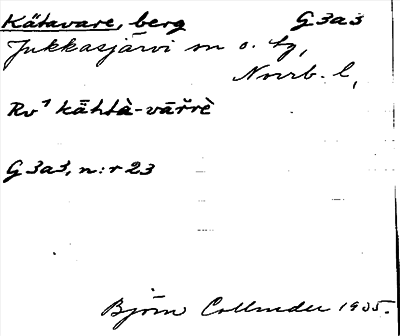 Kätavare, berg G3a3
Jukkasjärvi sn o. tg,
Norrb. l,
Rv⁷ kāhtà-vāřrè
G3a3, n:r 23
Björn Collinder 1935.